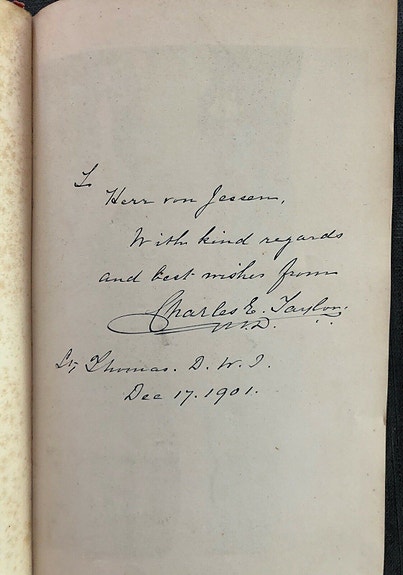 To
Herr von Jessen,
With kind regards
and best wishes from
Charles E. Taylor.
M.D.
St Thomas. D. W. I.
Dec 17. 1901.